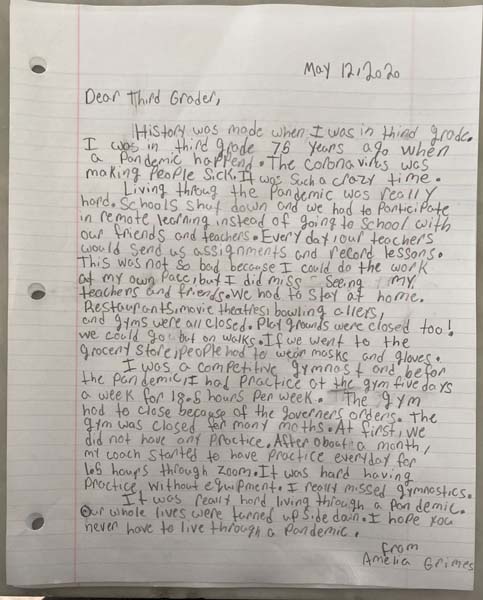 May 12, 2020
Dear Third Grader,
History was made when I was in third grade.
I was in third grade 76 years ago when
a Pandemic happend. The coronavirus was
making People sick. It was such a crazy time.
Living throug the Pandemic was really
hard. Schools shut down and we had to Participate
in remote learning instead of going to school with
our friends and teachers. Every day, our teachers
would send us assignments and record lessons.
This was not so bad because I could do the work
at my own Pace, but I did miss seeing my
teachers and friends. We had to stay at home.
Restaurants, movie theatres, bowling allers,
and gyms were all closed. Play grounds were closed too!
we could go but on walks. If we went to the
grocery store, People had to wear masks and gloves.
I was a competitive gymnast and befor
the Pandemic, I had Practice at the gym five days
a week for 18.5 hours Per week. The gym
had to close because of the governers orders. The
gym was closed for many moths. At first, we
did not have any Practice. After about a month,
my coach started to have Practice everyday for
1.5 hours through Zoom. It was hard having
Practice without equipment. I really missed gymnastics.
It was really hard living through a Pandemic.
Our whole lives were turned up side dain. I hope you
never have to live through a Pandemic.
from
Amelia Grimes